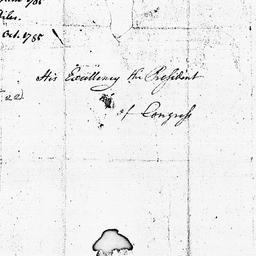 1785
Oct. 1785
His Excellency the President
of Congress